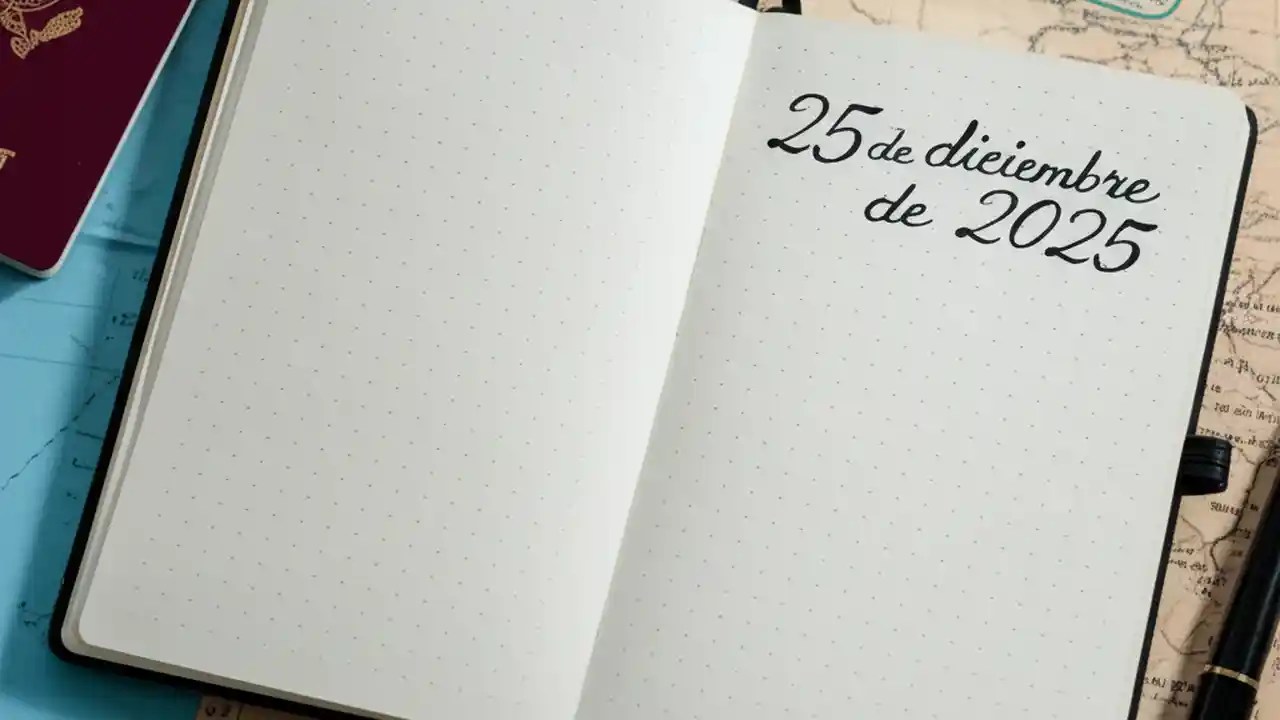 25 de diciembre
de 2025